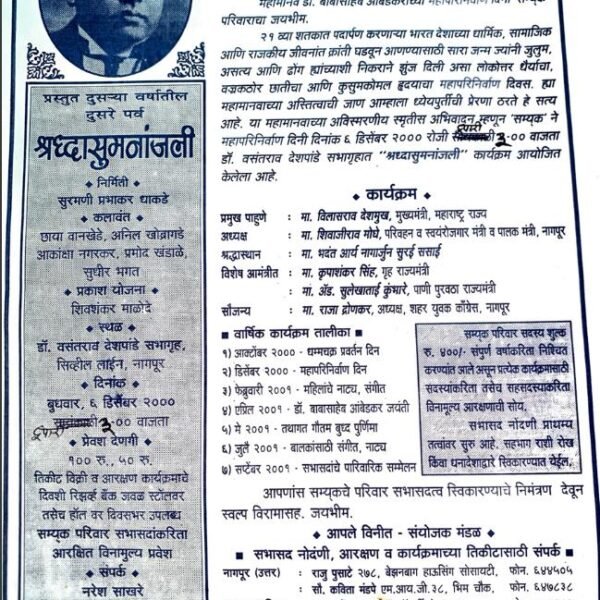 प्रस्तुत दुसऱ्या वर्षातील
दुसरे पर्व
श्रध्दासुमनांजली
◆ निर्मिती
सुरमणी प्रभाकर धाकडे
◆ कलावंत
छाया वानखेडे, अनिल खोब्रागडे
आकांक्षा नगरकर, प्रमोद खंडाळे,
सुधीर भगत
◆ प्रकाश योजना
शिवशंकर माळोदे
◆ स्थळ
डॉ. वसंतराव देशपांडे सभागृह,
सिव्हील लाईन, नागपूर
◆ दिनांक
बुधवार, ६ डिसेंबर २०००
दुपारी ३-०० वाजता
◆ प्रवेश देणगी
१०० रु., ५० रु.
तिकीट विक्री व आरक्षण कार्यक्रमाचे
दिवशी रिझर्व्ह बँक जवळ स्टॉलवर
तसेच हॉल वर दिवसभर उपलब्ध
सम्यक परिवार सभासदांकरिता
आरक्षित विनामुल्य प्रवेश
◆ संपर्क
नरेश साखरे
महामानव डॉ. बाबासाहेब आंबेडकरांच्या महापरिनिर्वाण दिनी सम्यक्
परिवाराचा जयभीम.
२१ व्या शतकात पदार्पण करणाऱ्या भारत देशाच्या धार्मिक, सामाजिक
आणि राजकीय जीवनांत क्रांती घडवून आणण्यासाठी सारा जन्म ज्यांनी जुलुम,
असत्य आणि ढोंग ह्यांच्याशी निकराने झुंज दिली असा लोकोत्तर धैर्याचा,
वज्रकठोर छातीचा आणि कुसुमकोमल हृदयाचा महापरिनिर्वाण दिवस. ह्या
महामानवाच्या अस्तित्वाची जाण आम्हाला ध्येयपुर्तीची प्रेरणा ठरते हे सत्य
आहे. या महामानवाच्या अविस्मरणीय स्मृतीस अभिवादन म्हणून 'सम्यक्' ने
महापरिनिर्वाण दिनी दिनांक ६ डिसेंबर २००० रोजी दुपारी ३-०० वाजता
डॉ. वसंतराव देशपांडे सभागृहात "श्रध्दासुमनांजली" कार्यक्रम आयोजित
केलेला आहे.
◆ कार्यक्रम ◆
प्रमुख पाहुणे : मा. विलासराव देशमुख, मुख्यमंत्री, महाराष्ट्र राज्य
अध्यक्ष : मा. शिवाजीराव मोघे, परिवहन व स्वयंरोजगार मंत्री व पालक मंत्री, नागपूर
श्रद्धास्थान : मा. भदंत आर्य नागार्जुन सुरई ससाई
विशेष आमंत्रीत : मा. कृपाशंकर सिंह, गृह राज्यमंत्री
: मा. ॲड. सुलेखाताई कुंभारे, पाणी पुरवठा राज्यमंत्री
सौजन्य : मा. राजा द्रोणकर, अध्यक्ष, शहर युवक काँग्रेस, नागपूर
■ वार्षिक कार्यक्रम तालीका ■
१) ऑक्टोंबर २००० - धम्मचक्र प्रवर्तन दिन
२) डिसेंबर २००० - महापरिनिर्वाण दिन
३) फेब्रुवारी २००१ - महिलांचे नाट्य, संगीत
४) एप्रिल २००१ - डॉ. बाबासाहेब आंबेडकर जयंती
५) मे २००१ - तथागत गौतम बुध्द पुर्णिमा
६) जुलै २००१ - बालकांसाठी संगीत, नाट्य
७) सप्टेंबर २००१ - सभासदांचे पारिवारिक सम्मेलन
सम्यक् परिवार सदस्य शुल्क
रु. ४००/- संपुर्ण वर्षाकरिता निश्चित
करण्यांत आले असून प्रत्येक कार्यक्रमासाठी
सदस्यांकरिता तसेच सहसदस्याकरिता
विनामूल्य आरक्षणाची सोय.
सभासद नोंदणी प्राथम्य
तत्वांवर सुरु आहे. सहभाग राशी रोख
किंवा धनादेशाद्वारे स्विकारण्यात येईल.
आपणांस सम्यक्‌चे परिवार सभासदत्व स्विकारण्याचे निमंत्रण देवून
स्वल्प विरामासह. जयभीम.
◆ आपले विनीत - संयोजक मंडळ ◆
■ सभासद नोंदणी, आरक्षण व कार्यक्रमाच्या तिकीटासाठी संपर्क ■
नागपूर (उत्तर) : राजु पुसाटे २७८, बेझनबाग हाऊसिंग सोसायटी, फोन. ६४४५०५
: सौ. कविता मंडपे एम.आय.जी.३८, भिम चौक, फोन. ६४७८३८